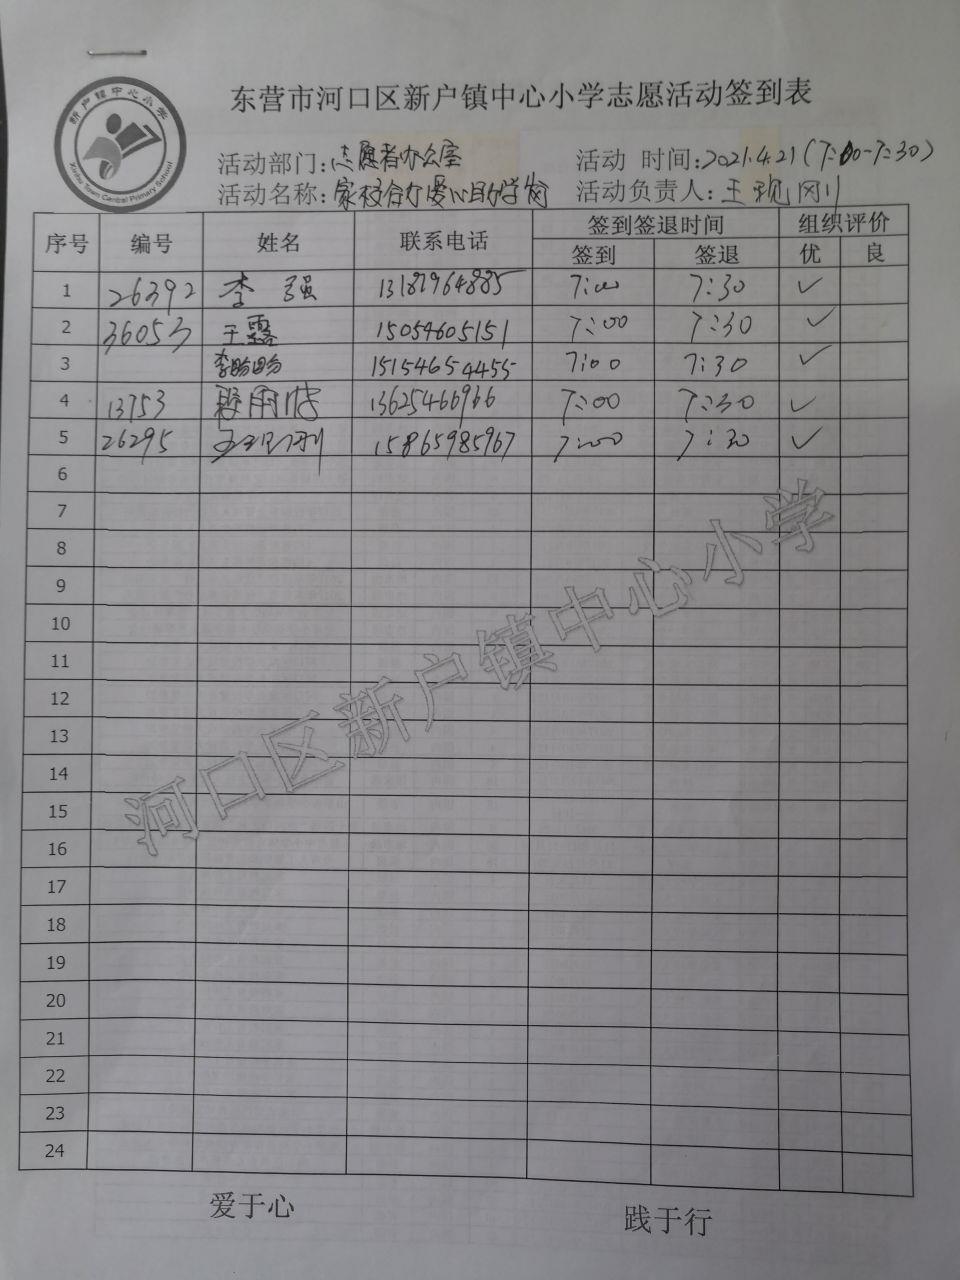 东营市河口区新户镇中心小学志愿活动签到表
新户镇中心小学
Xinhu Town Central Primary School
活动部门:志愿者办公室 活动 时间:2021.4.21(7:00-7:30)
活动名称:家校合力爱心助学岗 活动负责人:王砚刚
序号 编号 姓名 联系电话 签到签退时间 组织评价
签到 签退 优 良
1 26392 李强 13181964885 7:00 7:30 ✓
2 36053 王露 15054605151 7:00 7:30 ✓
3 李盼盼 15154654455 7:00 7:30 ✓
4 13753 13625466966 7:00 7:30 ✓
5 26295 15865985967 7:00 7:30 ✓
6
7
8
9
10
11
12
13
14
15
16
17
18
19
20
21
22
23
24
河口区新户镇中心小学
爱于心 践于行